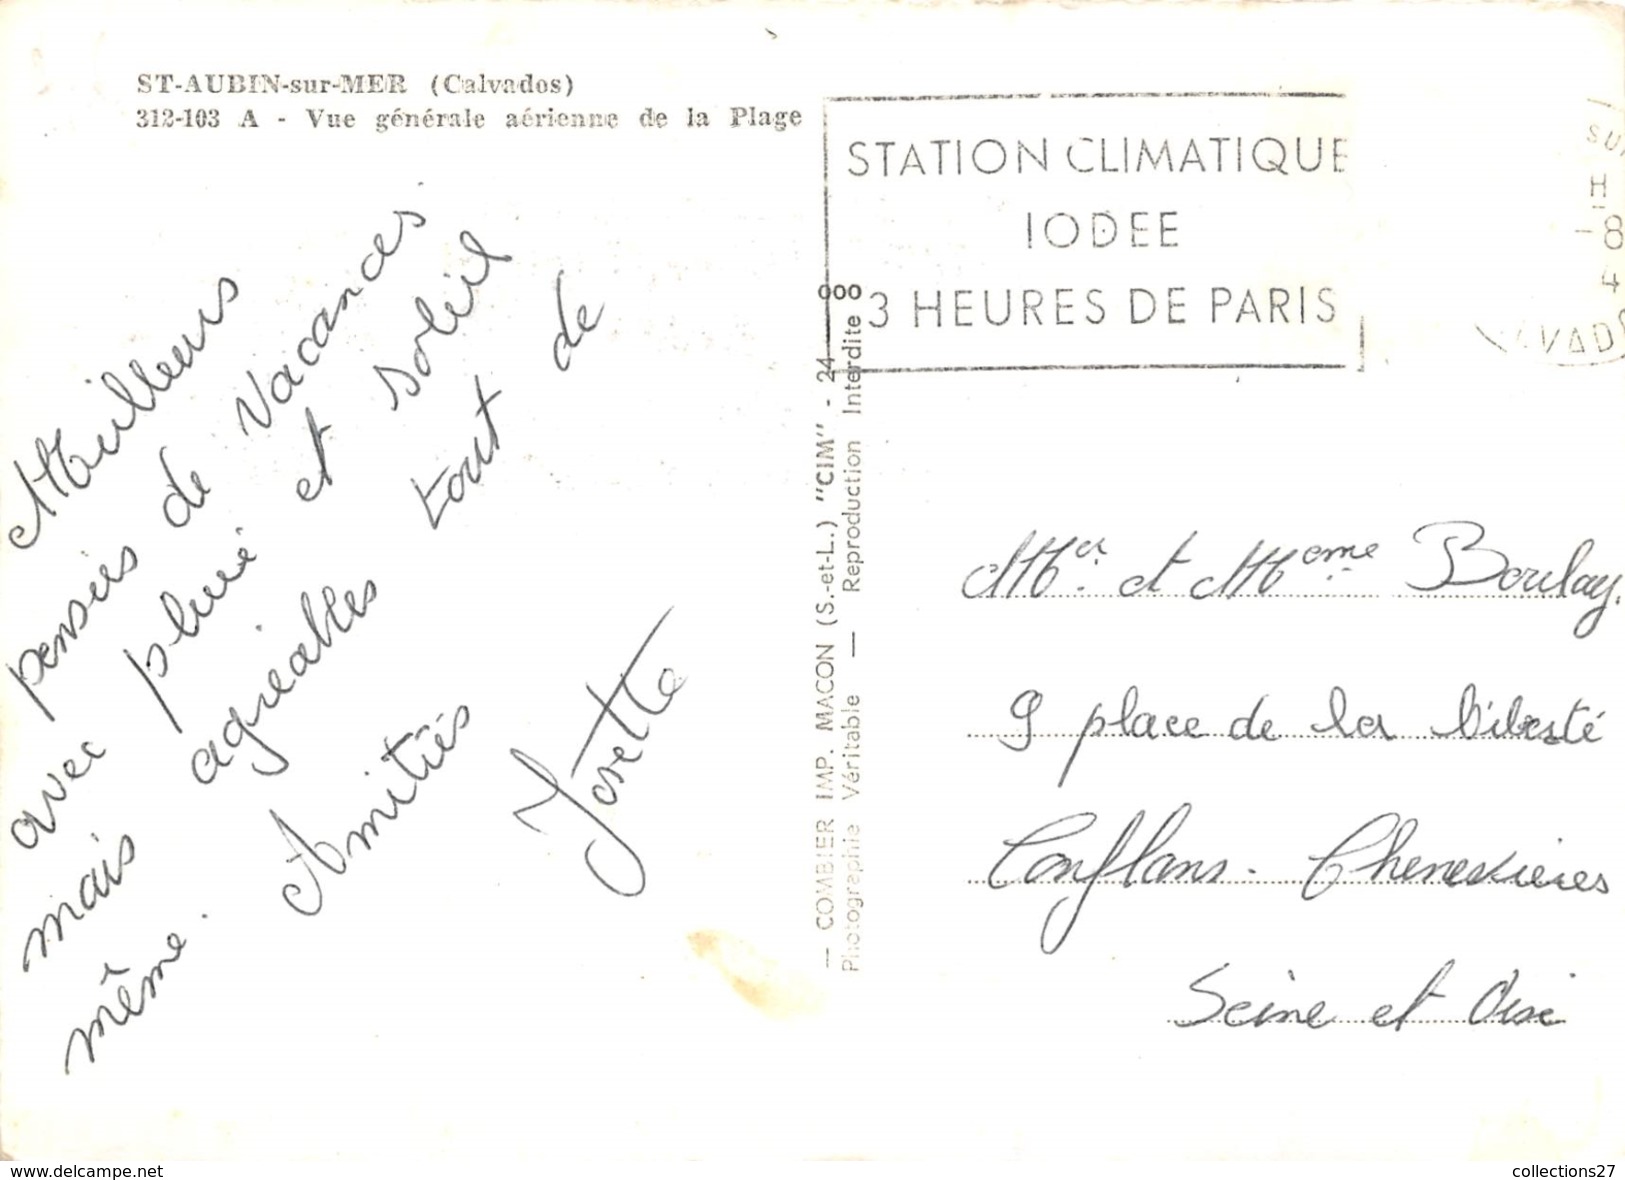 ST-AUBIN-sur-MER (Calvados)
312-103 A - Vue générale aérienne de la Plage
STATION CLIMATIQUE
IODEE
3 HEURES DE PARIS
SUR
H
-8
4
VADOS
Meilleurs
pensées de Vacances
avec pluie et soleil
mais agréables tout de
même. Amitiés
Josette
— COMBIER IMP. MACON (S.-et-L.) "CIM" - 24 ooo
Photographie Véritable — Reproduction Interdite
Mr. et Mme Boulay.
9 place de la liberté
Conflans. Chenevières
Seine et Oise
www.delcampe.net
collections27